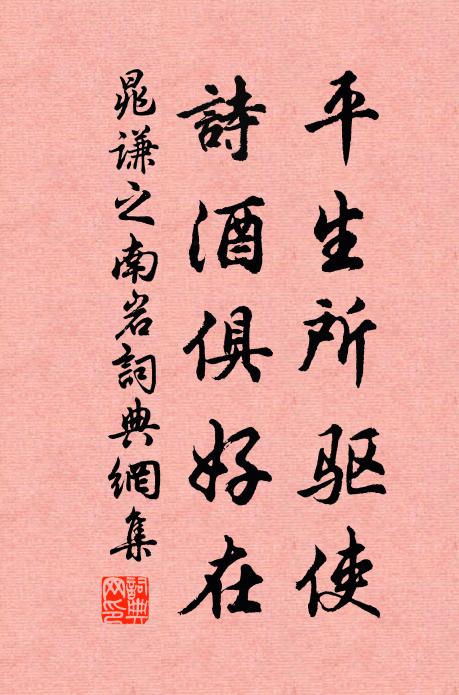 平生所驱使
詩酒俱好在
晁謙之南岩詞典網集
詞典网印